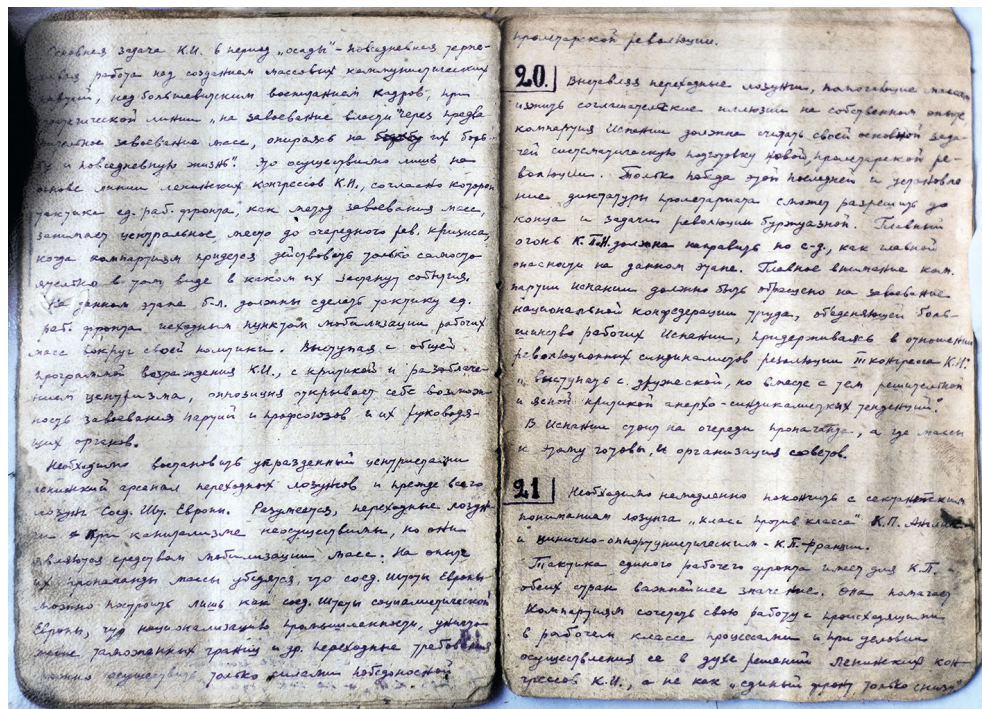 Основная задача К.И. в период „осады" – повседневная терпе-
ливая работа над созданием массовых коммунистических
партий, над большевистским воспитанием кадров, при
стратегической линии „на завоевание власти через предва
рительное завоевание масс, опираясь на их борь-
бу и повседневную жизнь". Это осуществимо лишь на
основе линии ленинских конгрессов К.И., согласно которой
тактика ед. раб. фронта, как метод завоевания масс,
занимает центральное место до очередного рев. кризиса,
когда компартиям придется действовать только самосто
ятельно в том виде в каком их застанут события.
На данном этапе б-л. должны сделать тактику ед.
раб. фронта исходным пунктом мобилизации рабочих
масс вокруг своей политики. Выступая с общей
программой возрождения К.И., с критикой и разоблаче-
нием центризма, оппозиция открывает себе возмож-
ность завоевания партий и профсоюзов и их руководя-
щих органов.
Необходимо востановить упраздненный центристами
ленинский арсенал переходных лозунгов и прежде всего
лозунг Соед. Шт. Европы. Разумеется, переходные лозун
ги при капитализме неосуществимы, но они
являются средством мобилизации масс. На опыте
их пропаганды массы убедятся, что соед. Штаты Европы
можно построить лишь как соед. Штаты социалистической
Европы, что национализацию промышленности, уничто
жение таможенных границ и др. переходные требования
можно осуществить только силами победоносной
пролетарской революции.
20. Выставляя переходные лозунги, помогающие массам
изжить соглашательские иллюзии на собственном опыте,
компартия Испании должна считать своей основной зада-
чей систематическую подготовку новой, пролетарской ре-
волюции. Только победа этой последней и установле
ние диктатуры пролетариата сможет разрешить до
конца и задачи революции буржуазной. Главный
огонь К.П.И. должна направить по с-д., как главной
опасности на данном этапе. Главное внимание ком.
партии Испании должно быть обращено на завоевание
национальной конфедерации труда, обединяющей боль-
шинство рабочих Испании, придерживаясь в отношении
революционных синдикалистов резолюции III конгресса К.И.:
„выступать с дружеской, но вместе с тем решительной
и ясной критикой анархо-синдикалистских тенденций".
В Испании стоит на очереди пропаганда, а где массы
к этому готовы, и организация советов.
21 Необходимо немедленно покончить с сектантским
пониманием лозунга „класс против класса" К.П. Англии
и цинично-оппортунистическим – К.П. Франции.
Тактика единого рабочего фронта имеет для К.П.
обеих стран важнейшее значение. Она помогает
Компартиям сочетать свою работу с происходящими
в рабочем классе процессами и при условии
осуществления ее в духе решений Ленинских кон-
грессов К.И., а не как „единый фронт только снизу"